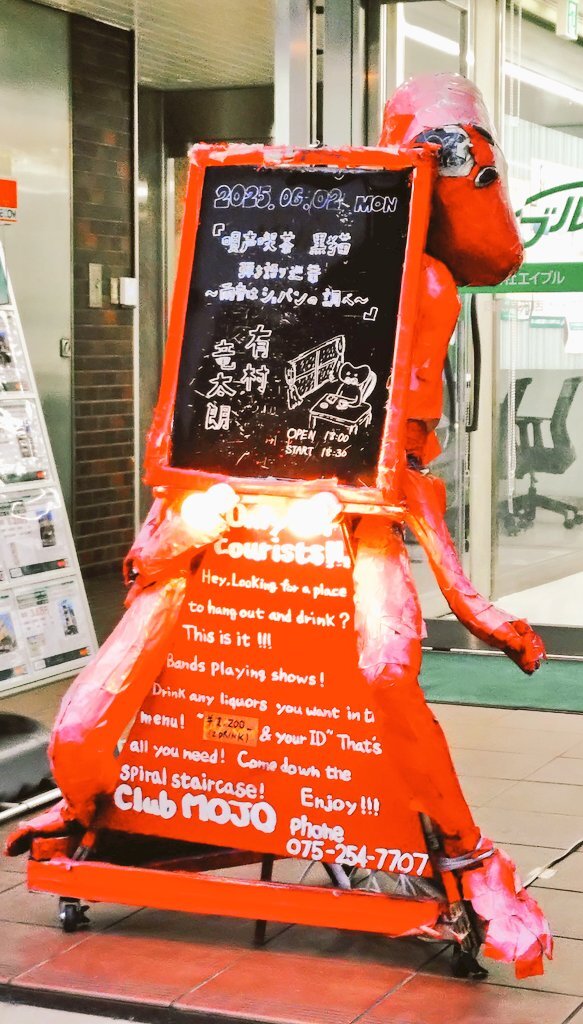 2025.06.02 MON
『喫茶 黒猫
弾き語り
〜雨音はショパンの調べ〜
』
有村
竜太朗
OPEN 18:00
START 18:30
tourists!!
Hey, Looking for a place
to hang out and drink?
This is it !!!
Bands playing shows!
Drink any liquors you want in
menu! ¥1,200-
(2DRINK)
& your ID~ That's
all you need! Come down the
spiral staircase! Enjoy!!!
Club MOJO
Phone
075-254-7707
ブル
社エイブル